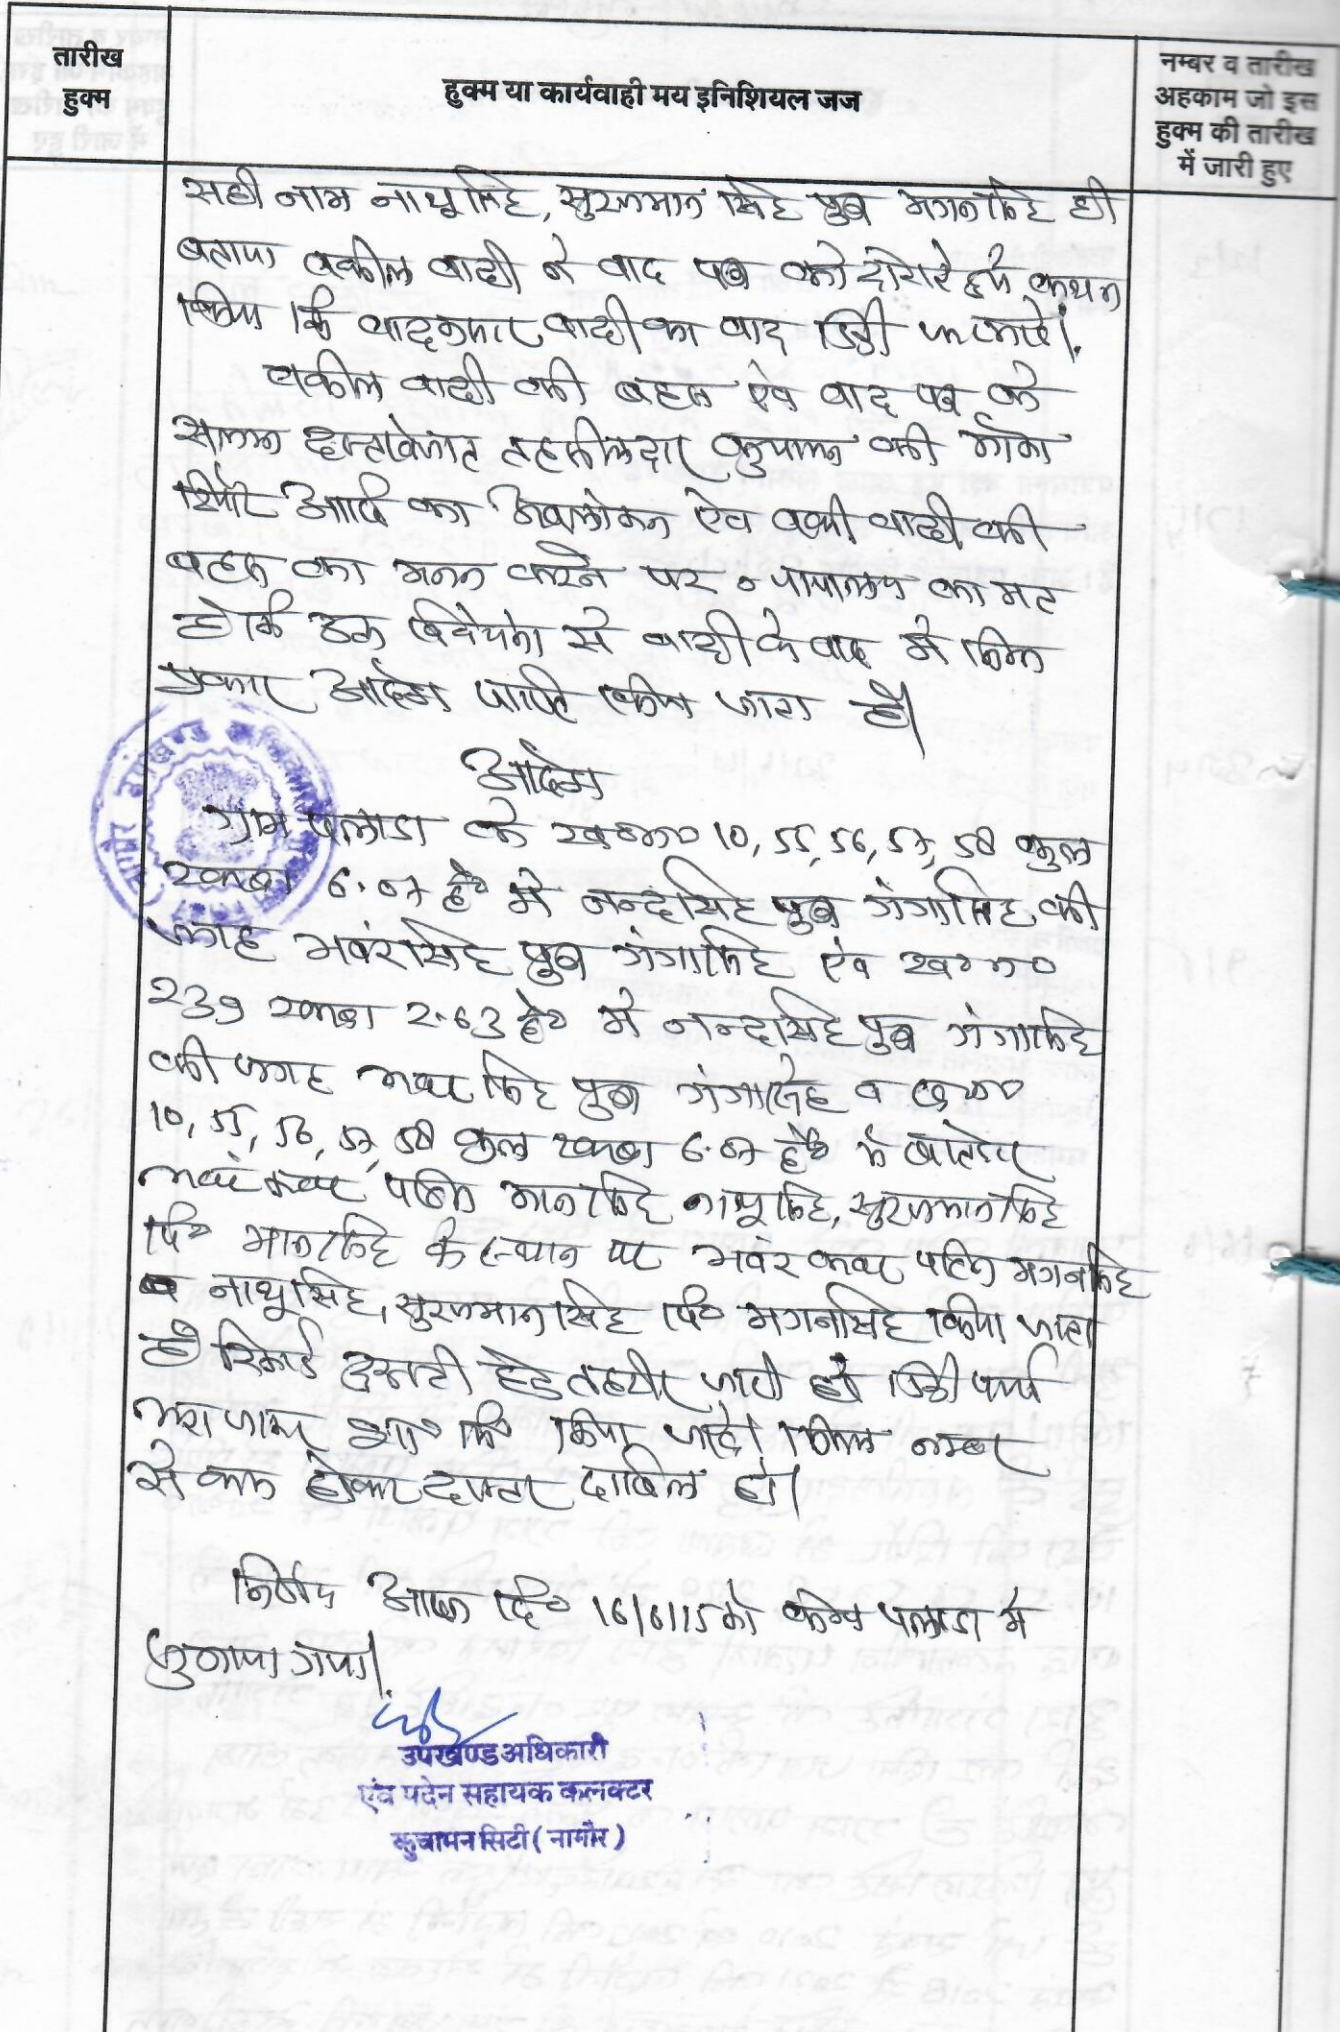 तारीख
हुक्म
हुक्म या कार्यवाही मय इनिशियल जज
नम्बर व तारीख
अहकाम जो इस
हुक्म की तारीख
में जारी हुए
सही नाम नाथूसिंह, सुरजभान सिंह पुत्र मगनसिंह ही
बताया वकील वादी ने वाद पत्र को दोहराते हुये कथन
किया कि वादी का वाद डिक्री फरमावें।
वकील वादी की बहस एवं वाद पत्र के
सलग्न दस्तावेजात तहसीलदार कुचामन की मौका
रिपोर्ट आदि का अवलोकन एवं वकील वादी की
बहस का मनन करने पर न्यायालय का मत
है कि उक्त विवेचना से वादी के वाद में निम्न
प्रकार आदेश पारित किया जाता है।
आदेश
ग्राम पलाडा के ख०न० 10, 55, 56, 57, 58 कुल
रकबा 6.07 है० में नन्दसिंह पुत्र गंगासिंह की
जगह भवंरसिंह पुत्र गंगासिंह एवं ख०न०
239 रकबा 2.63 है० में नन्दसिंह पुत्र गंगासिंह
की जगह भवरसिंह पुत्र गंगासिंह व ख०न०
10, 55, 56, 57, 58 कुल रकबा 6.07 है० के खातेदार
भवंर कवर पत्नि मानसिंह नाथूसिंह, सुरजभानसिंह
पि० मानसिंह के स्थान पर भवंर कवर पत्नि मगनसिंह
व नाथूसिंह, सुरजभानसिंह पि० मगनसिंह किया जाता
है रिकार्ड दुरूस्ती हेतु तहरीर जारी हो डिक्री पर्चा
जारी किया जावे। मिसल नम्बर
से कम होकर दफ्तर दाखिल हो।
निर्णय आज दि० 16/6/15 को केम्प पलाडा में
सुनाया गया।
उपखण्ड अधिकारी
एवं पदेन सहायक कलक्टर
कुचामन सिटी (नागौर)